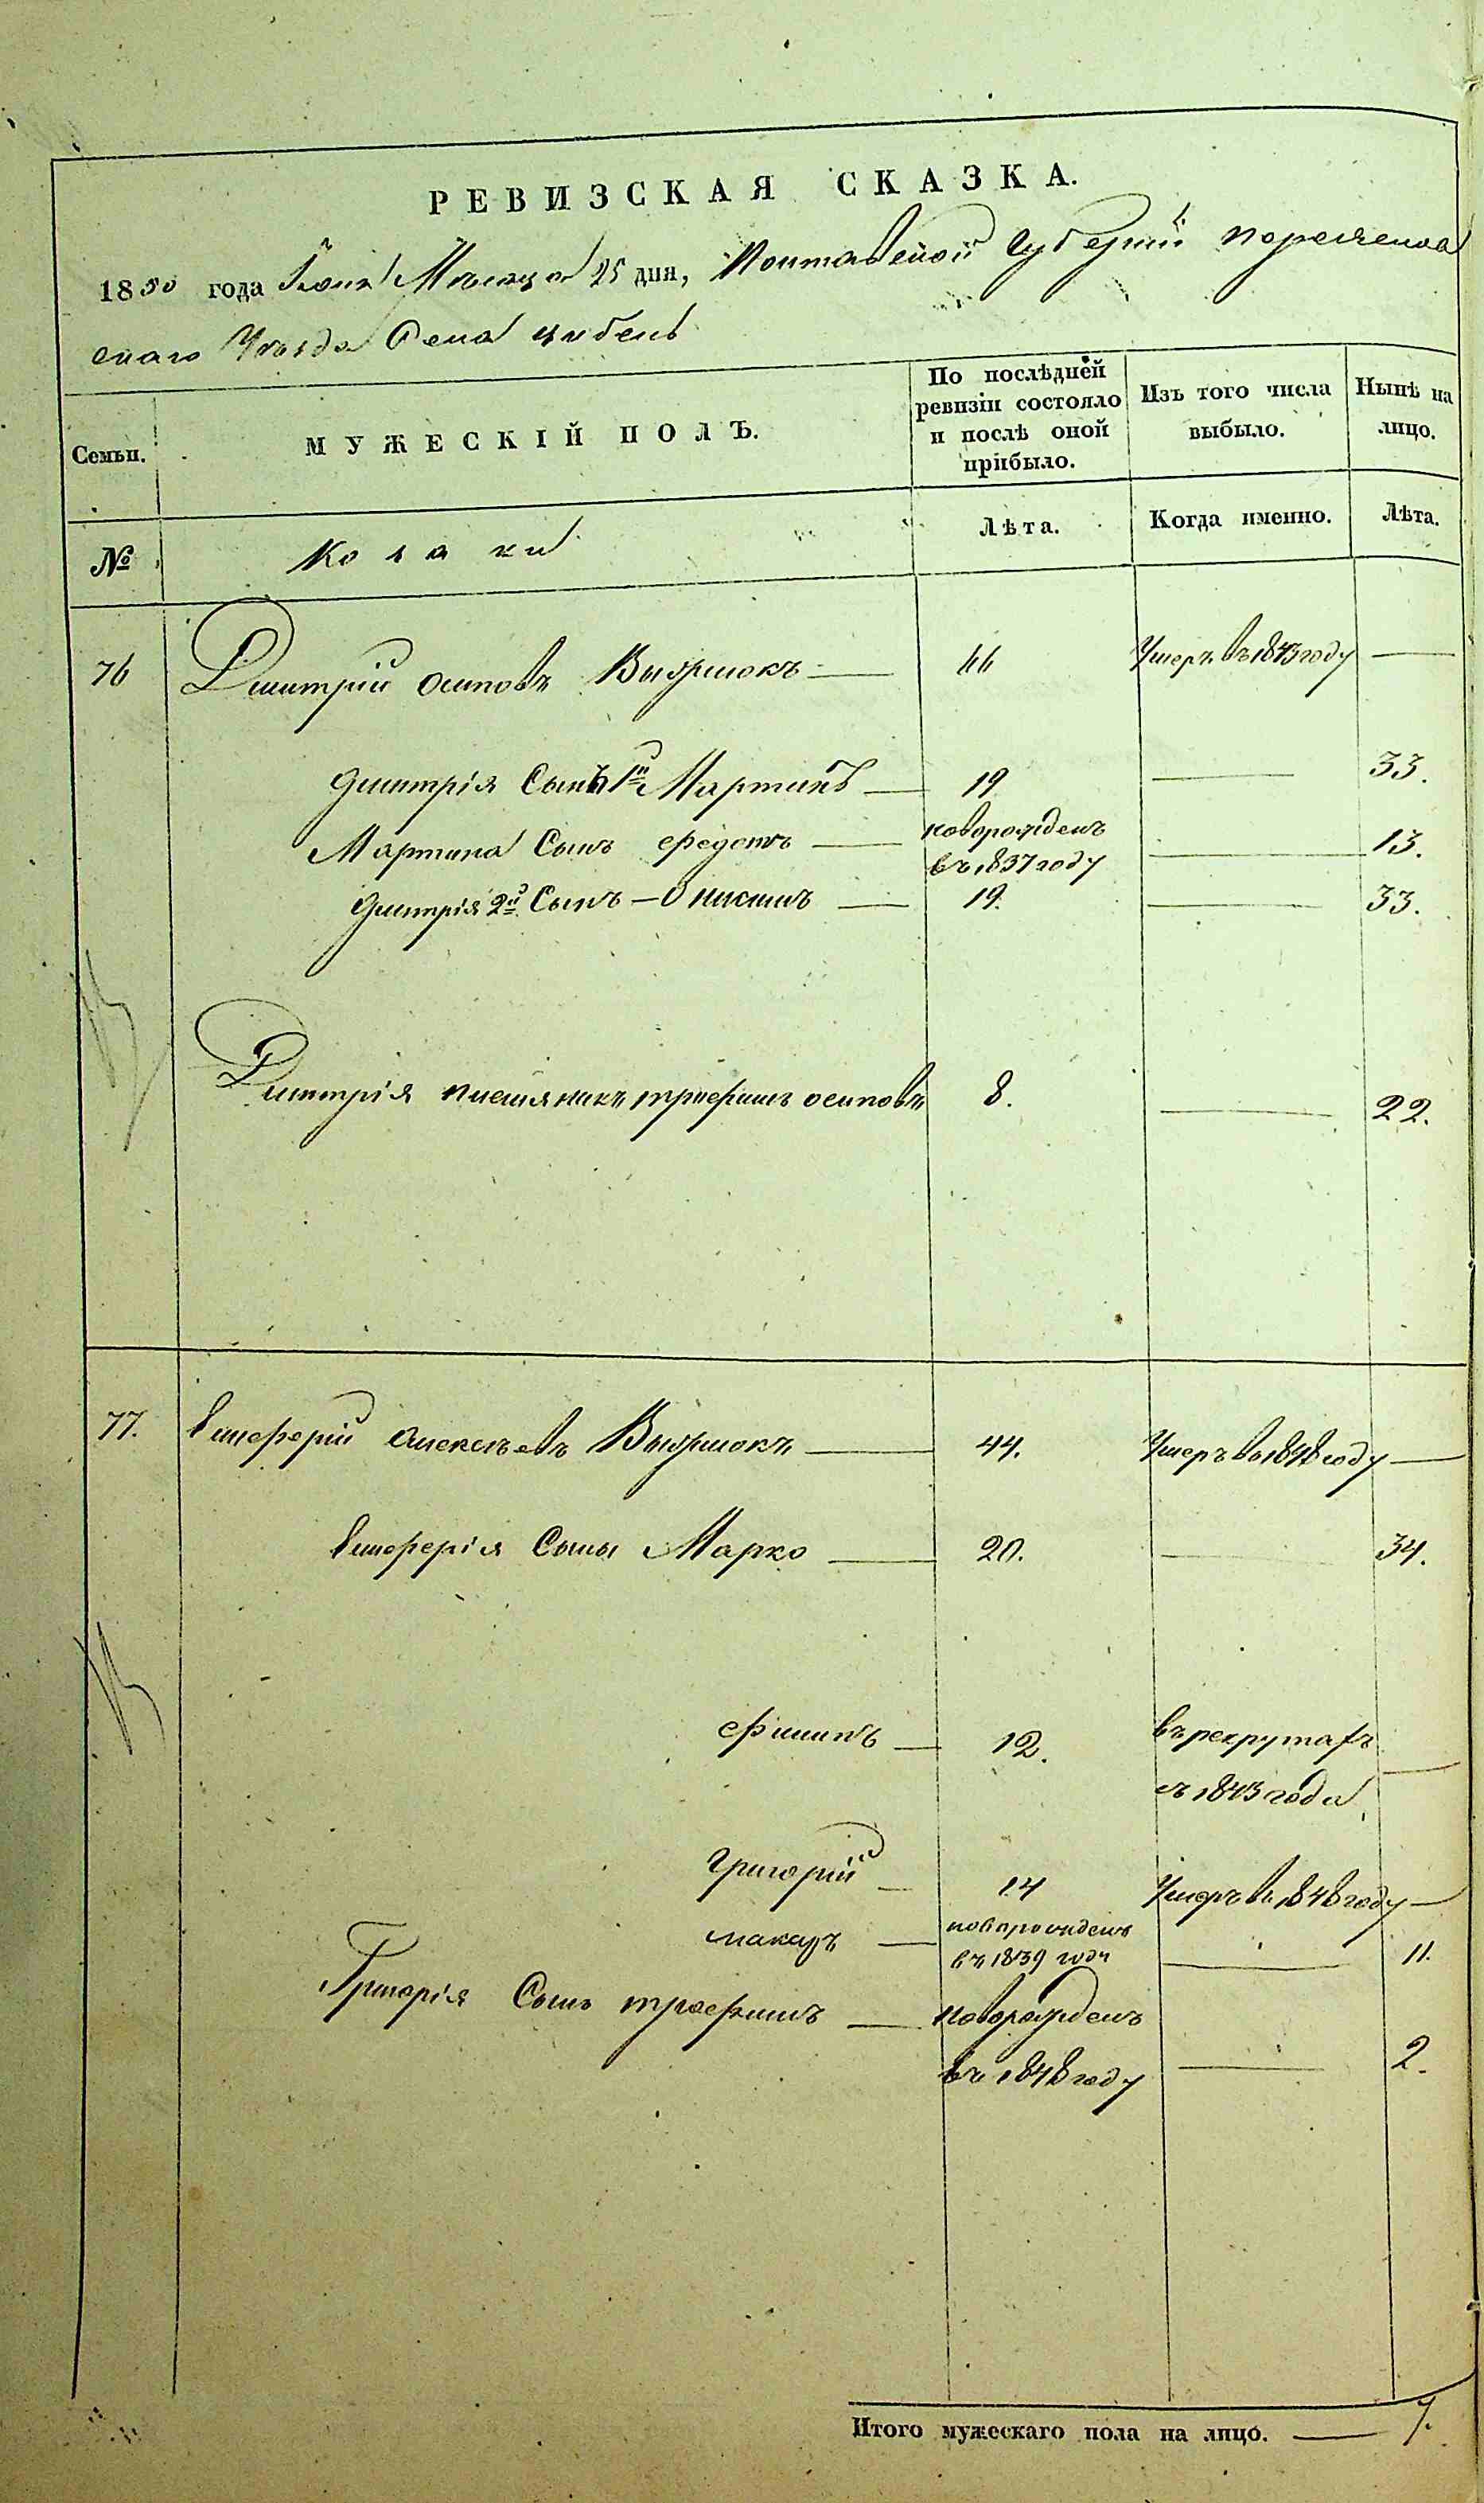 РЕВИЗСКАЯ СКАЗКА.
1850 года Іюня Мѣсяца 25 дня, Полтавской Губерніи Переяслов
скаго Уѣзда Села Цибель
Семьи. МУЖЕСКІЙ ПОЛЪ. По послѣдней ревизіи состояло и послѣ оной прибыло. Изъ того числа выбыло. Нынѣ на лицо.
№ Козаки Лѣта. Когда именно. Лѣта.
76 Дмитрій Осиповъ — 66 Умеръ въ 1843 году —
Дмитрія Сынъ 1й Мартинъ — 19 — 33.
Мартина Сынъ Федотъ — новорожденъ в 1837 году — 13.
Дмитрія 2й Сынъ — Онисимъ — 19. — 33.
Дмитрія племянникъ Трофимъ Осиповъ 8. — 22.
77. Елиферій Алексѣевъ — 44. Умеръ въ 1848 году —
Елиферія Сыны Марко — 20. — 34.
Филипъ — 12. въ рекрутахъ
съ 1843 года —
Григорій — 14 Умеръ въ 1848 году —
Макаръ — новорожденъ въ 1839 году — 11.
Григорія Сынъ Трофимъ — новорожденъ
въ 1848 году — 2.
Итого мужескаго пола на лицо. — 7.